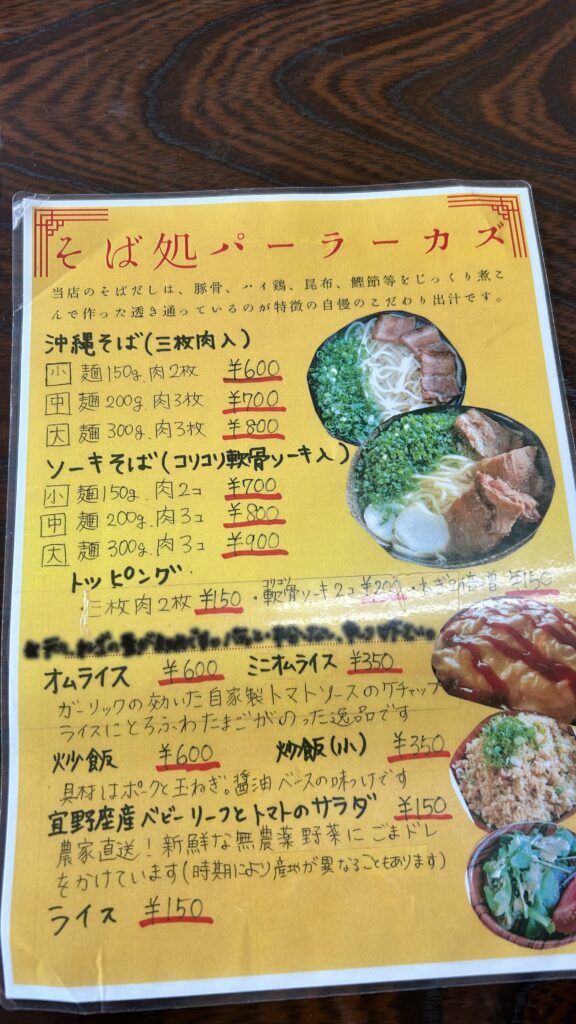 そば処パーラーカズ
当店のそばだしは、豚骨、ハイ鶏、昆布、鰹節等をじっくり煮こ
んで作った透き通っているのが特徴の自慢のこだわり出汁です。
沖縄そば(三枚肉入)
小 麺150g.肉2枚 ¥600
中 麺200g.肉3枚 ¥700
大 麺300g.肉3枚 ¥800
ソーキそば(コリコリ軟骨ソーキ入)
小 麺150g.肉2コ ¥700
中 麺200g.肉3コ ¥800
大 麺300g.肉3コ ¥900
トッピング
・三枚肉2枚 ¥150 ・軟骨ソーキ2コ ¥200 ・ねぎ ¥150
オムライス ¥600 ミニオムライス ¥350
ガーリックの効いた自家製トマトソースのケチャップ
ライスにとろふわたまごがのった逸品です
炒飯 ¥600 炒飯(小) ¥350
具材はポークと玉ねぎ。醤油ベースの味つけです
宜野座産ベビーリーフとトマトのサラダ ¥150
農家直送!新鮮な無農薬野菜にごまドレ
をかけています(時期により産地が異なることもあります)
ライス ¥150